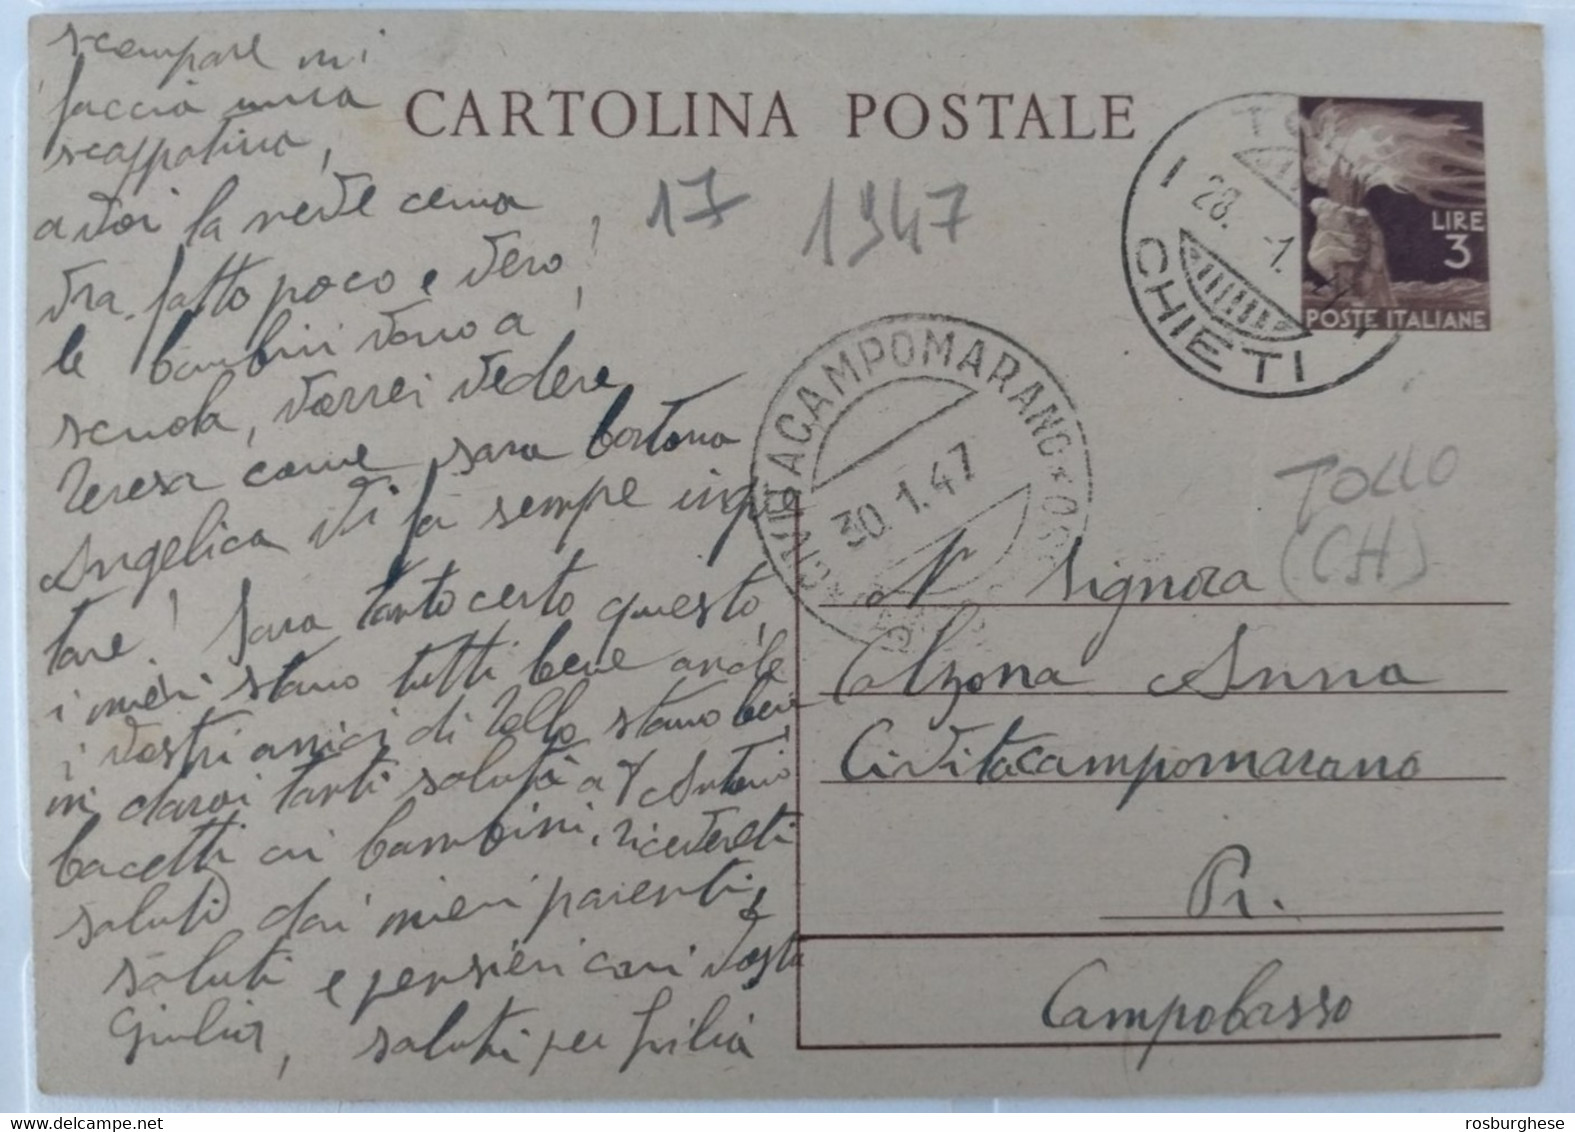 scampare mi
faccia una
scappatina,
a voi la neve
vra fatto poco è vero!
le bambini vanno a
scuola, vorrei vedere
Teresa come sara
Angelica vi fa sempre inqie
tare! Sara tanto certo questo,
i miei stano tutti bene anche
i vostri amici di Tollo stano bene
mi darai tanti saluti a Antonio
bacetti ai bambini, ricevereti
saluti dai miei parenti e
saluti e pensieri cari vosta
Giulia, saluti per
CARTOLINA POSTALE
17 1947
TOLLO
CHIETI
28. 1.
LIRE
3
POSTE ITALIANE
CIVITACAMPOMARANO
30.1.47
TOLLO
(CH)
Signora
Anna
Civitacampomarano
Pr.
Campobasso
rosburghese